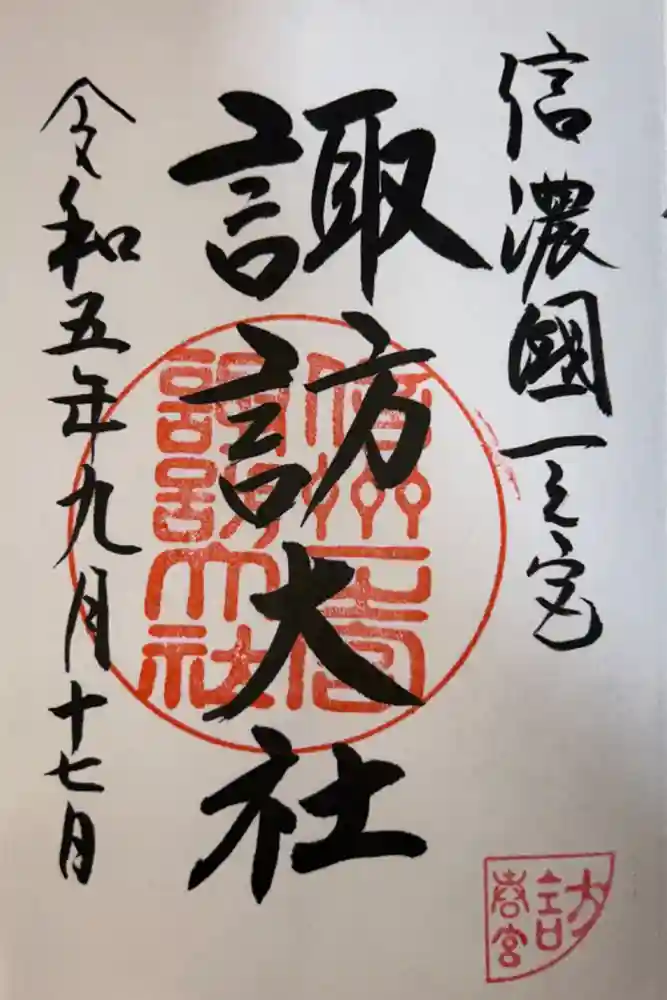 信濃國一之宮
諏訪大社
令和五年九月十七日
信州一宮
諏訪大社
訪
春宮